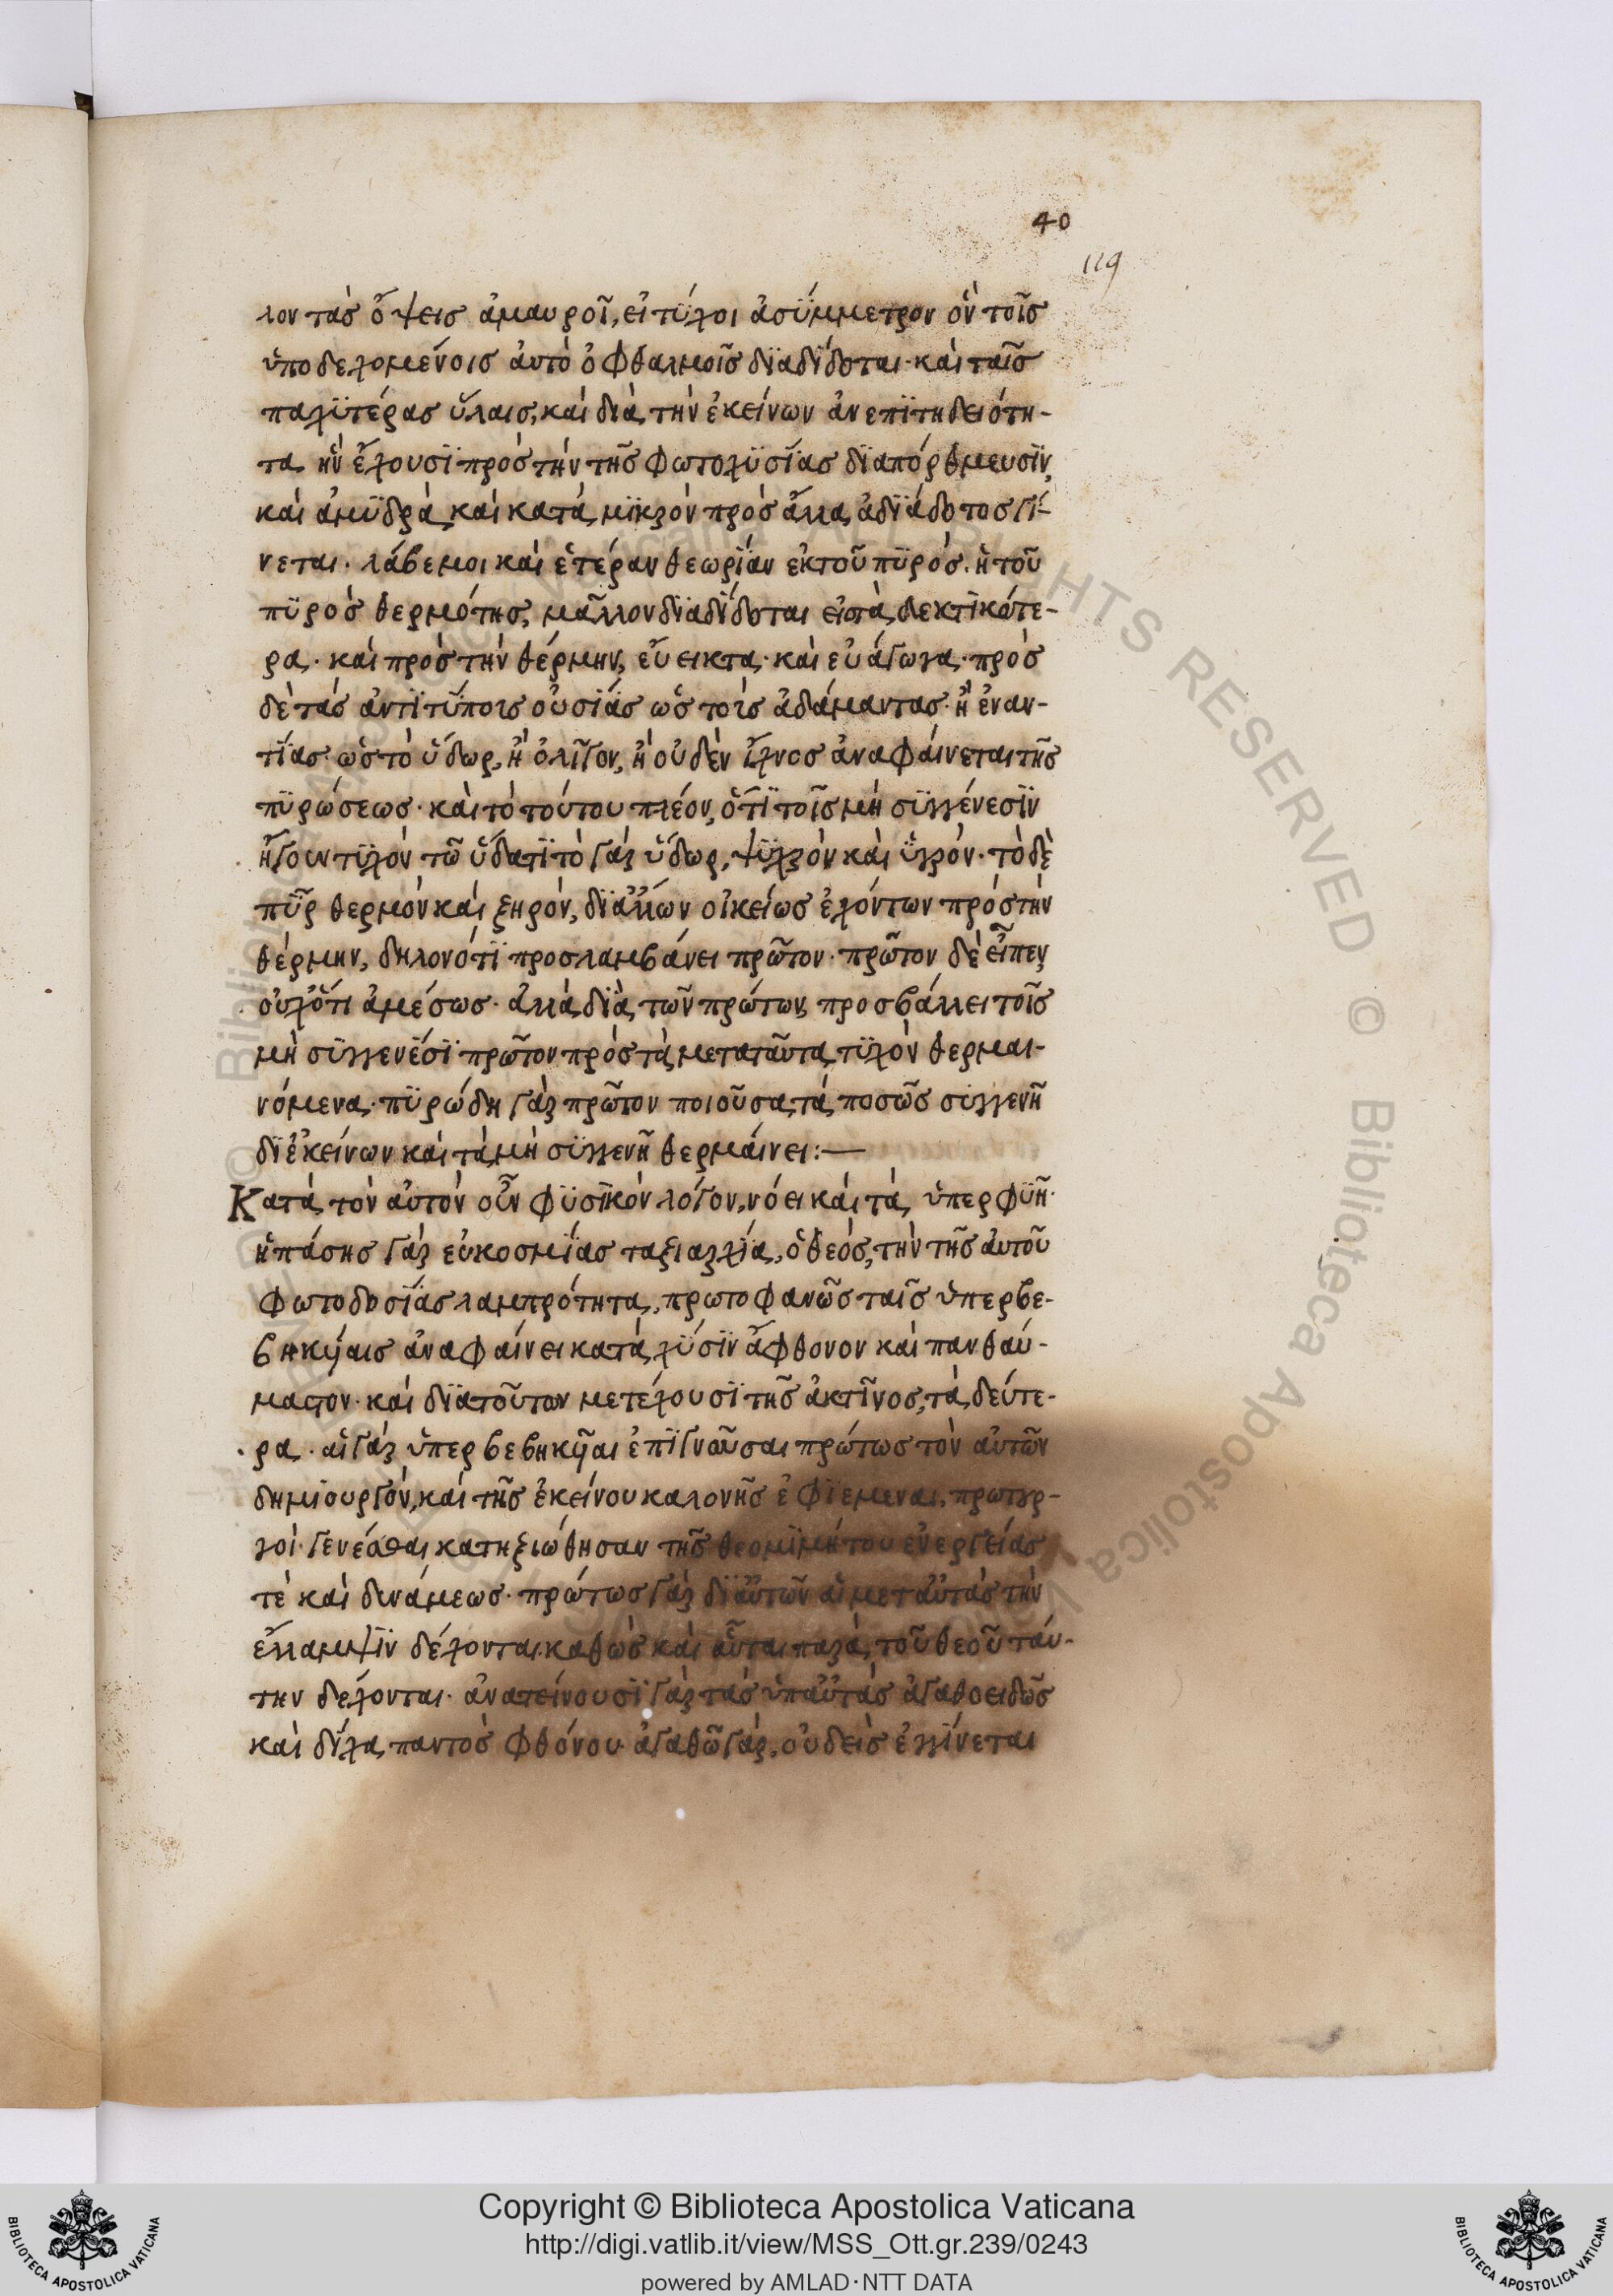 40
119
λον τὰς ὄψεις ἀμαυροῖ, εἰ τύχοι ἀσύμμετρον ὂν τοῖς
ὑποδεχομένοις ἀυτὸ ὀφθαλμοῖς διαδίδοται· καὶ ταῖς
παχϋτέρας ὕλαις, καὶ διὰ τὴν ἐκείνων ἀνεπϊτηδειότη-
τα ἣν ἔχουσϊ πρὸς τὴν τῆς φωτοχϋσΐας δϊαπόρθμευσϊν,
καὶ ἀμϋδρὰ καὶ κατὰ μϊκρὸν πρὸς ἄλλα ἀδϊάδοτος γί-
νεται. λάβε μοι καὶ ἑτέραν θεωρΐαν ἐκ τοῦ πϋρός. ἡ τοῦ
πϋρὸς θερμότης, μᾶλλον δϊαδΐδοται εἰς τὰ δεκτϊκότε-
ρα· καὶ πρὸς τὴν θέρμην, εὔεικτα· καὶ εὐάγωγα· πρὸς
δὲ τὰς ἀντϊτΰποις οὐσΐας ὡς τοὶς ἀδάμαντας· ἢ ἐναν-
τΐας ὡς τὸ ὕδωρ, ἢ ὀλῖγον, ἢ οὐδὲν ἴχνος ἀναφάινεται τῆς
πϋρώσεως· καὶ τὸ τούτου πλέον, ὅτϊ τοῖς μὴ σϋγγένεσϊν
ἤγουν τϋχὸν τῶ ὕδατϊ τὸ γὰρ ὕδωρ, ψϋχρὸν καὶ ὑγρόν· τὸ δὲ
πῦρ θερμὸν καὶ ξηρόν, δϊ ἄλλων οἰκείως ἐχόντων πρὸς τὴν
θέρμην, δηλονότϊ προσλαμβάνει πρῶτον· πρῶτον δὲ εἶπεν
οὐχ ὅτι ἀμέσως· ἀλλὰ δϊὰ τῶν πρώτων προσβάλλει τοῖς
μὴ σϋγγενέσϊ πρῶτον πρὸς τὰ μετα ταῦτα τϋχὸν θερμαι-
νόμενα· πϋρώδη γὰρ πρῶτον ποιοῦσα τὰ ποσῶς συγγενῆ
δϊ ἐκείνων καὶ τὰ μὴ σϋγγενῆ θερμάινει:—
Κατὰ τὸν αὐτὸν οὖν φϋσϊκὸν λόγον, νόει καὶ τὰ ὑπερφϋῆ·
ἡ πάσης γὰρ εὐκοσμΐας ταξιαρχΐα, ὁ θεός, τὴν τῆς ἀυτοῦ
φωτοδοσΐας λαμπρότητα, πρωτοφανῶς ταῖς ὑπερβε-
βηκΰαις ἀναφαίνει κατὰ χΰσϊν ἄφθονον καὶ πανθαύ-
μαστον· καὶ δϊατοῦτον μετέχουσϊ τῆς ἀκτῖνος, τὰ δεύτε-
ρα· αἱ γὰρ ὑπερβεβηκῦαι ἐπϊγνοῦσαι πρώτως τὸν αὑτῶν
δημϊουργόν, καὶ τῆς ἐκείνου καλονῆς ἐφϊέμεναι, πρωτουρ-
γοὶ γενέσθαι κατηξιώθησαν τῆς θεομϊμήτου ἐνεργείας
τὲ καὶ δυνάμεως· πρώτως γὰρ δϊ ἀυτῶν αἱ μετ αὐτὰς τὴν
ἔλλαμψϊν δέχονται, καθὼς καὶ αὗται παρὰ τοῦ θεοῦ τάυ-
την δέχονται· ἀνατείνουσϊ γὰρ τὰς ὑπ αὐτὰς ἀγαθοειδῶς
καὶ δΐχα παντὸς φθόνου· ἀγαθῶ γὰρ, οὐδεὶς ἐγγίνεται
Copyright © Biblioteca Apostolica Vaticana
http://digi.vatlib.it/view/MSS_Ott.gr.239/0243
powered by AMLAD·NTT DATA